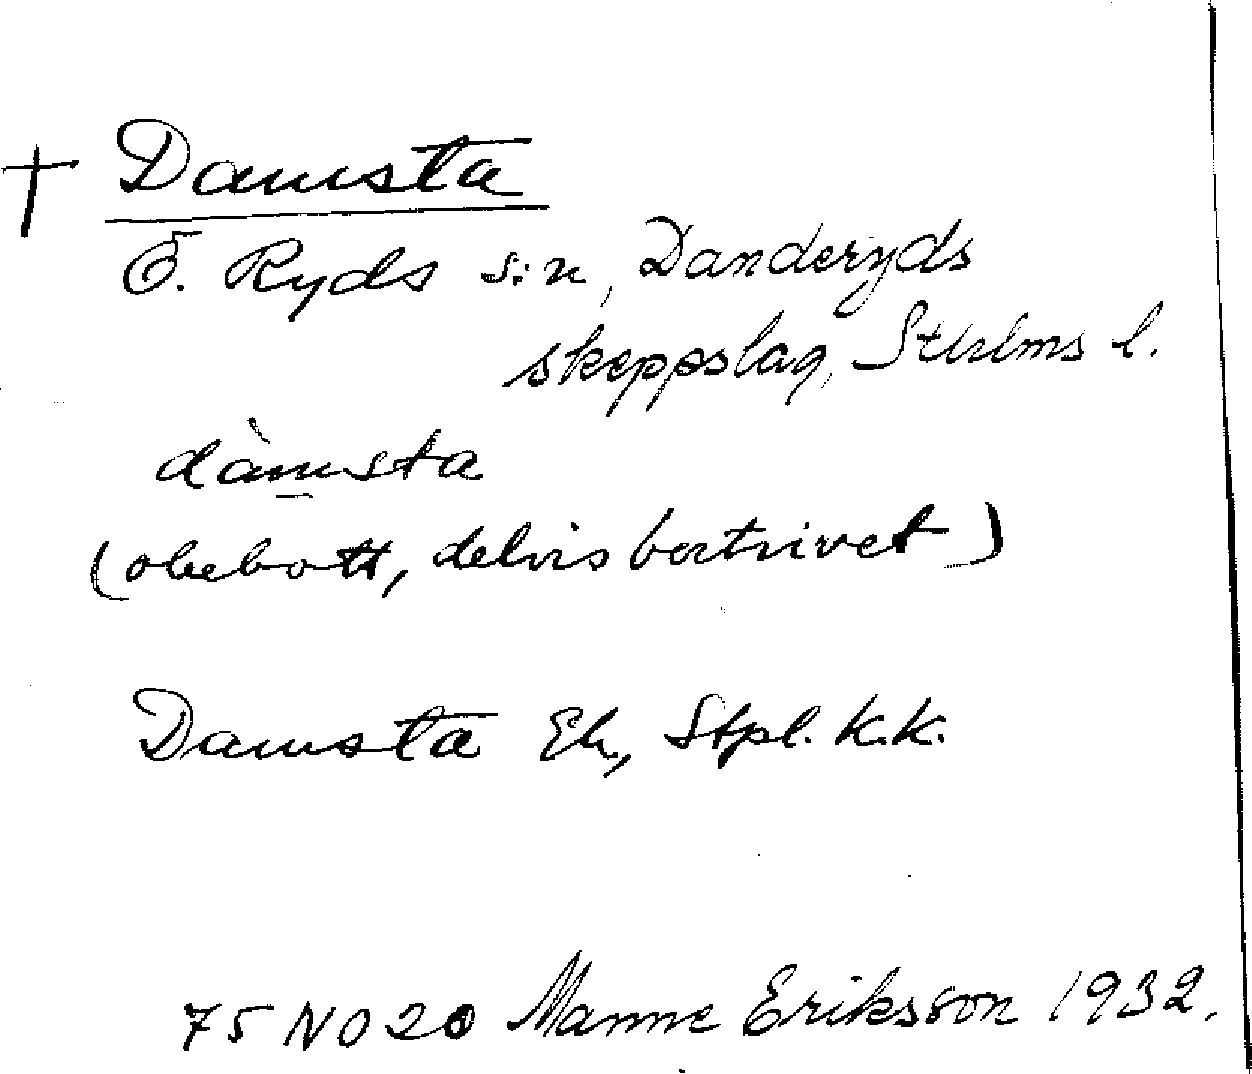 † Damsta
Ö. Ryds s:n, Danderyds
skeppslag, Sthlms l.
dàmsta
(obebott, delvis bortrivet)
Damsta Ek, Stpl. K.K.
75 NO 20 Manne Eriksson 1932.